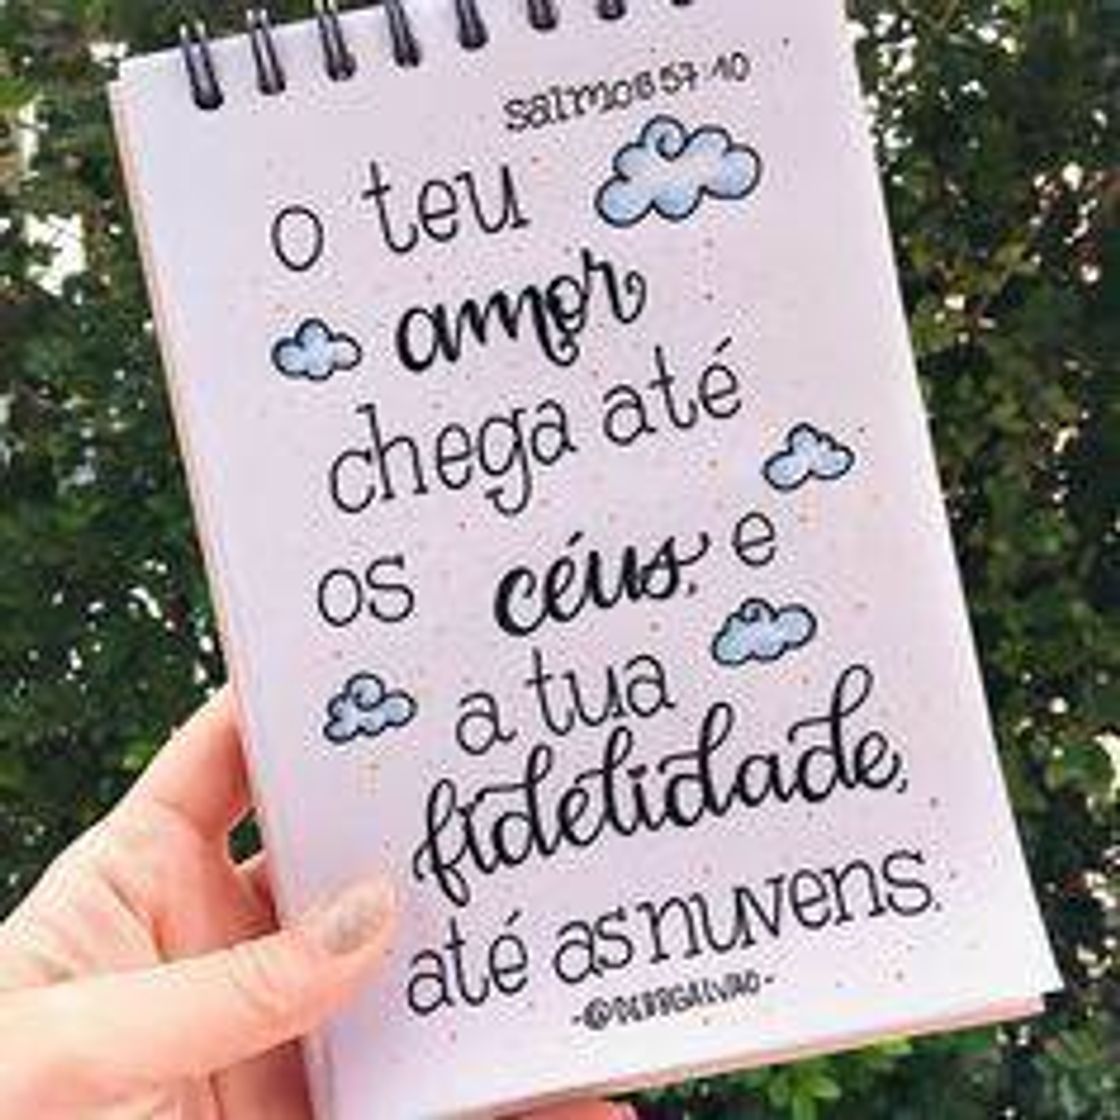 salmos 57:10
o teu
amor
chega até
os céus, e
a tua
fidelidade,
até as nuvens.